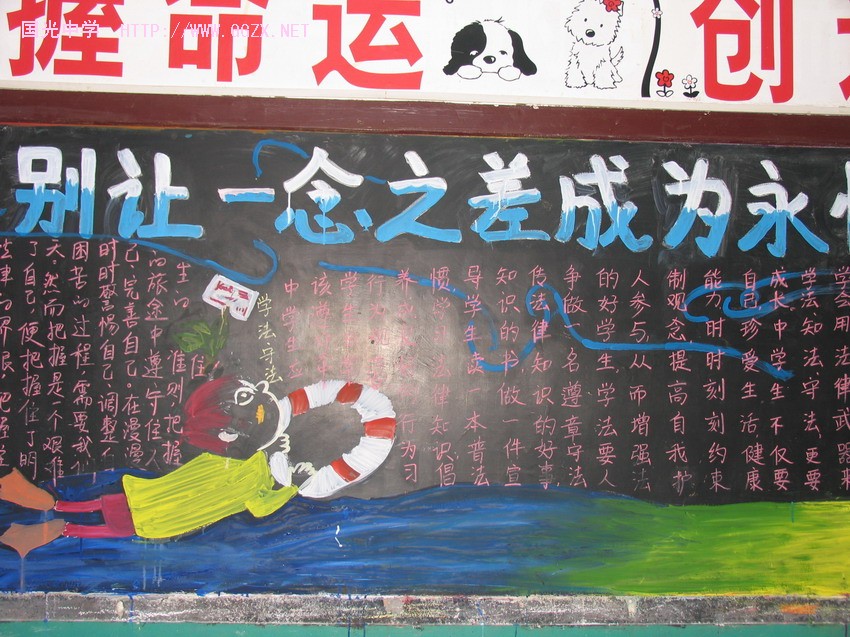 国光中学 HTTP://WWW.GGZX.NET
握命运 创
别让一念之差成为永
学会用法律武器来
学法知法守法,更要
成长中学生不仅要
自己珍爱生活,健康
能力时时刻刻约束
制观念,提高自我护
人参与,从而增强法
的好学生,学法要人
争做一名遵章守法
传法律知识的好事,
知识的书,做一件宣
导学生读一本普法
惯学习法律知识倡
养 行为习
行
学生
该
中学生应
学法守法
生的 准则,把握住
的旅途中遵守住人
己,完善自己。在漫漫
时时警惕自己,调整
困苦的过程,需要我们
天,然而把握是个艰难
了自己,便把握住了明
法律的界限,把握住